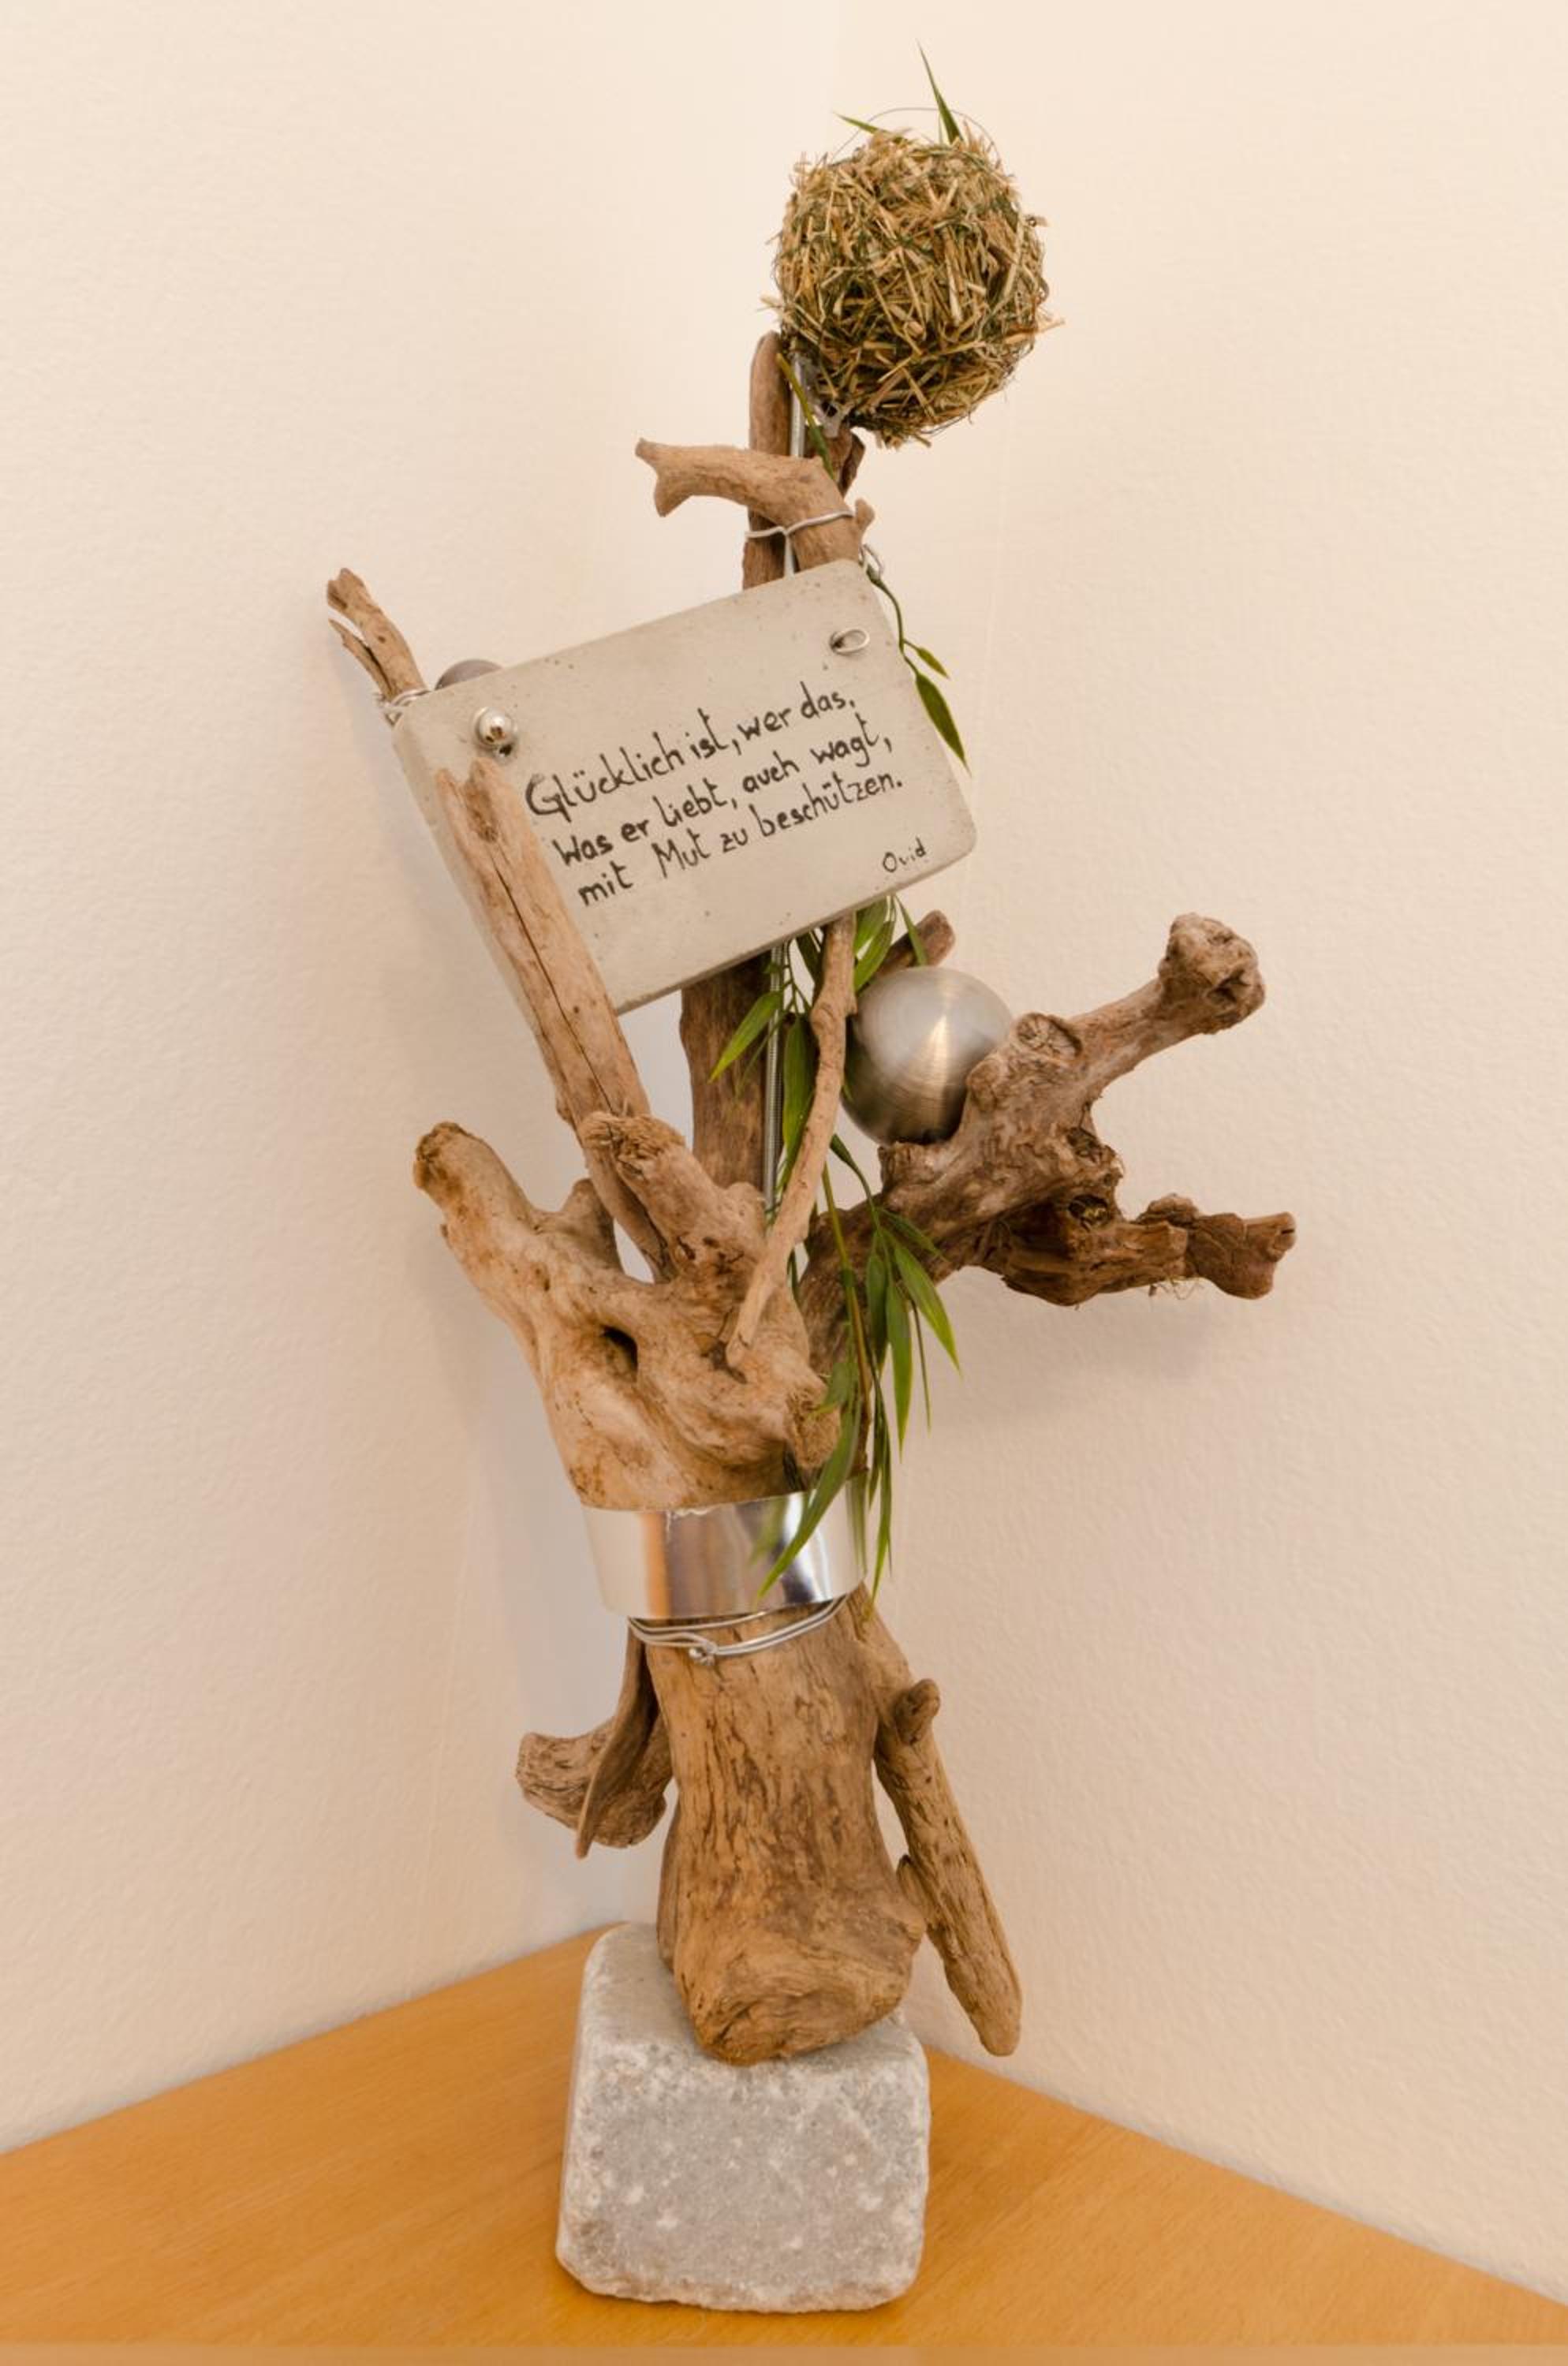 Glücklich ist, wer das,
Was er liebt, auch wagt,
mit Mut zu beschützen.
Ovid